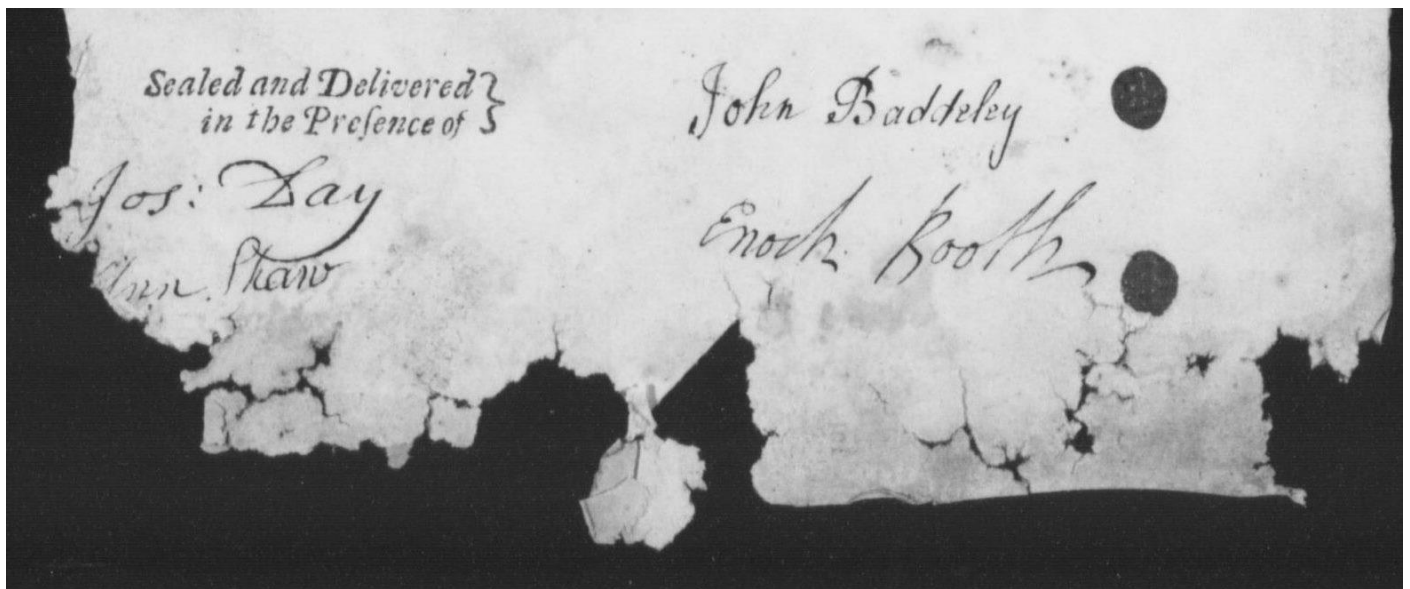 Sealed and Delivered
in the Preſence of
Jos: Day
Ann Shaw
John Baddeley
Enoch Booth